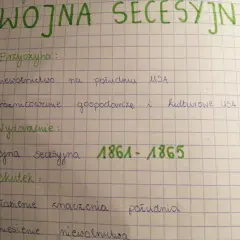 WOJNA SECESYJN
Przyczyna:
niewolnictwo na południu USA
zróżnicowanie gospodarcze i kulturowe USA
Wydarzenie:
ojna secesyjna 1861-1865
Skutek:
znaczenia południa
niewolnictwa